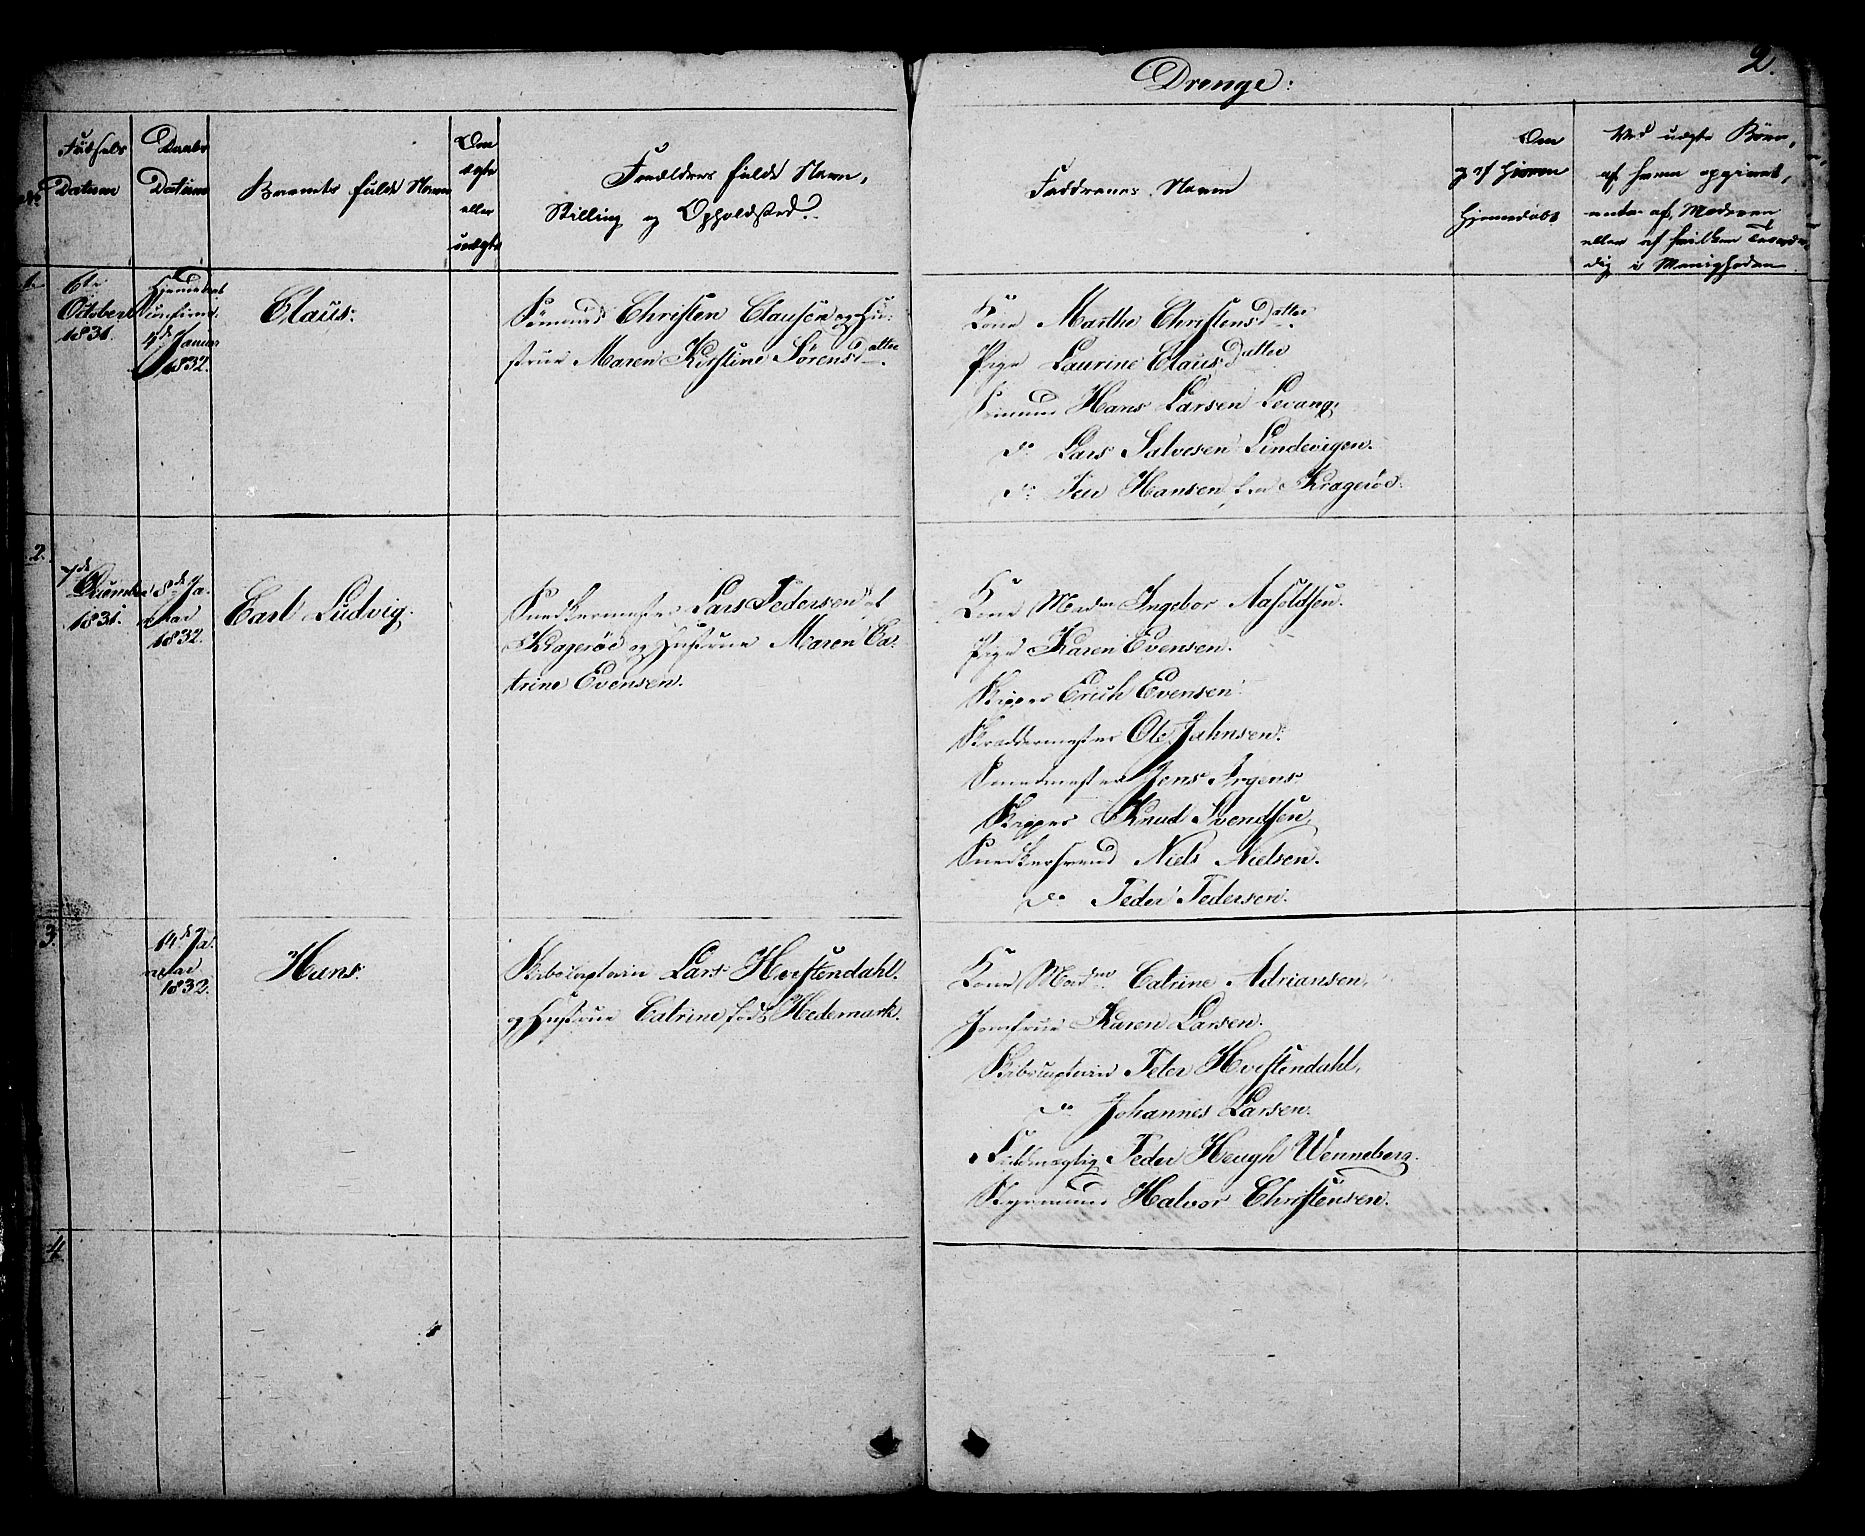 2.
Drenge:
Fødsels
Datum
Daabs
Datum
Barnets fulde Navn
Om
ægte
eller
uægte
Forældres fulde Navn,
Stilling og Opholdsted.
Faddrenes Navne
Om
Hjemmedøbt
Ved uægte Børn,
af hvem opgivet,
enten af Moderen
eller af hvilken Troværdig
i Menigheden
6te
October
1831.
Hjemmedøbt
4de Januar
1832.
Claus:
Sømand Christen Clausen og Hu-
strue Maren Kirstine Sørensdatter.
Kone Marthe Christensdatter
Pige Laurine Clausdatter
Sømand Hans Larsen Levang,
do Lars Salvesen Lindevigen.
do Hansen fra Kragerøe.
2.
7de
December
1831.
8de Ja-
nuar
1832.
Carl Ludvig.
Snedkermester Lars Pedersen af
Kragerøe og Hustrue Maren Ca-
trine Evensen.
Kone Madm Ingebor Aasoldsen.
Pige Karen Evensen.
Skipper Erich Evensen.
Skreddermester Ole Jahnsen.
Jens Irgens
Skipper Knud Svendsen,
Snedkersvend Niels Nielsen.
do Peder Pedersen.
3.
14de Ja-
nuar
1832.
Hans:
Skibscaptain Lars Hvistendahl.
og Hustrue Catrine født Hedemark.
Kone Madm Catrine Adriansen,
Jomfrue Karen Larsen.
Skibscaptain Peter Hvistendahl,
do Johannes Larsen.
Fuldmægtig Peder Heugh Wenneberg.
Halvor Christensen.
4.